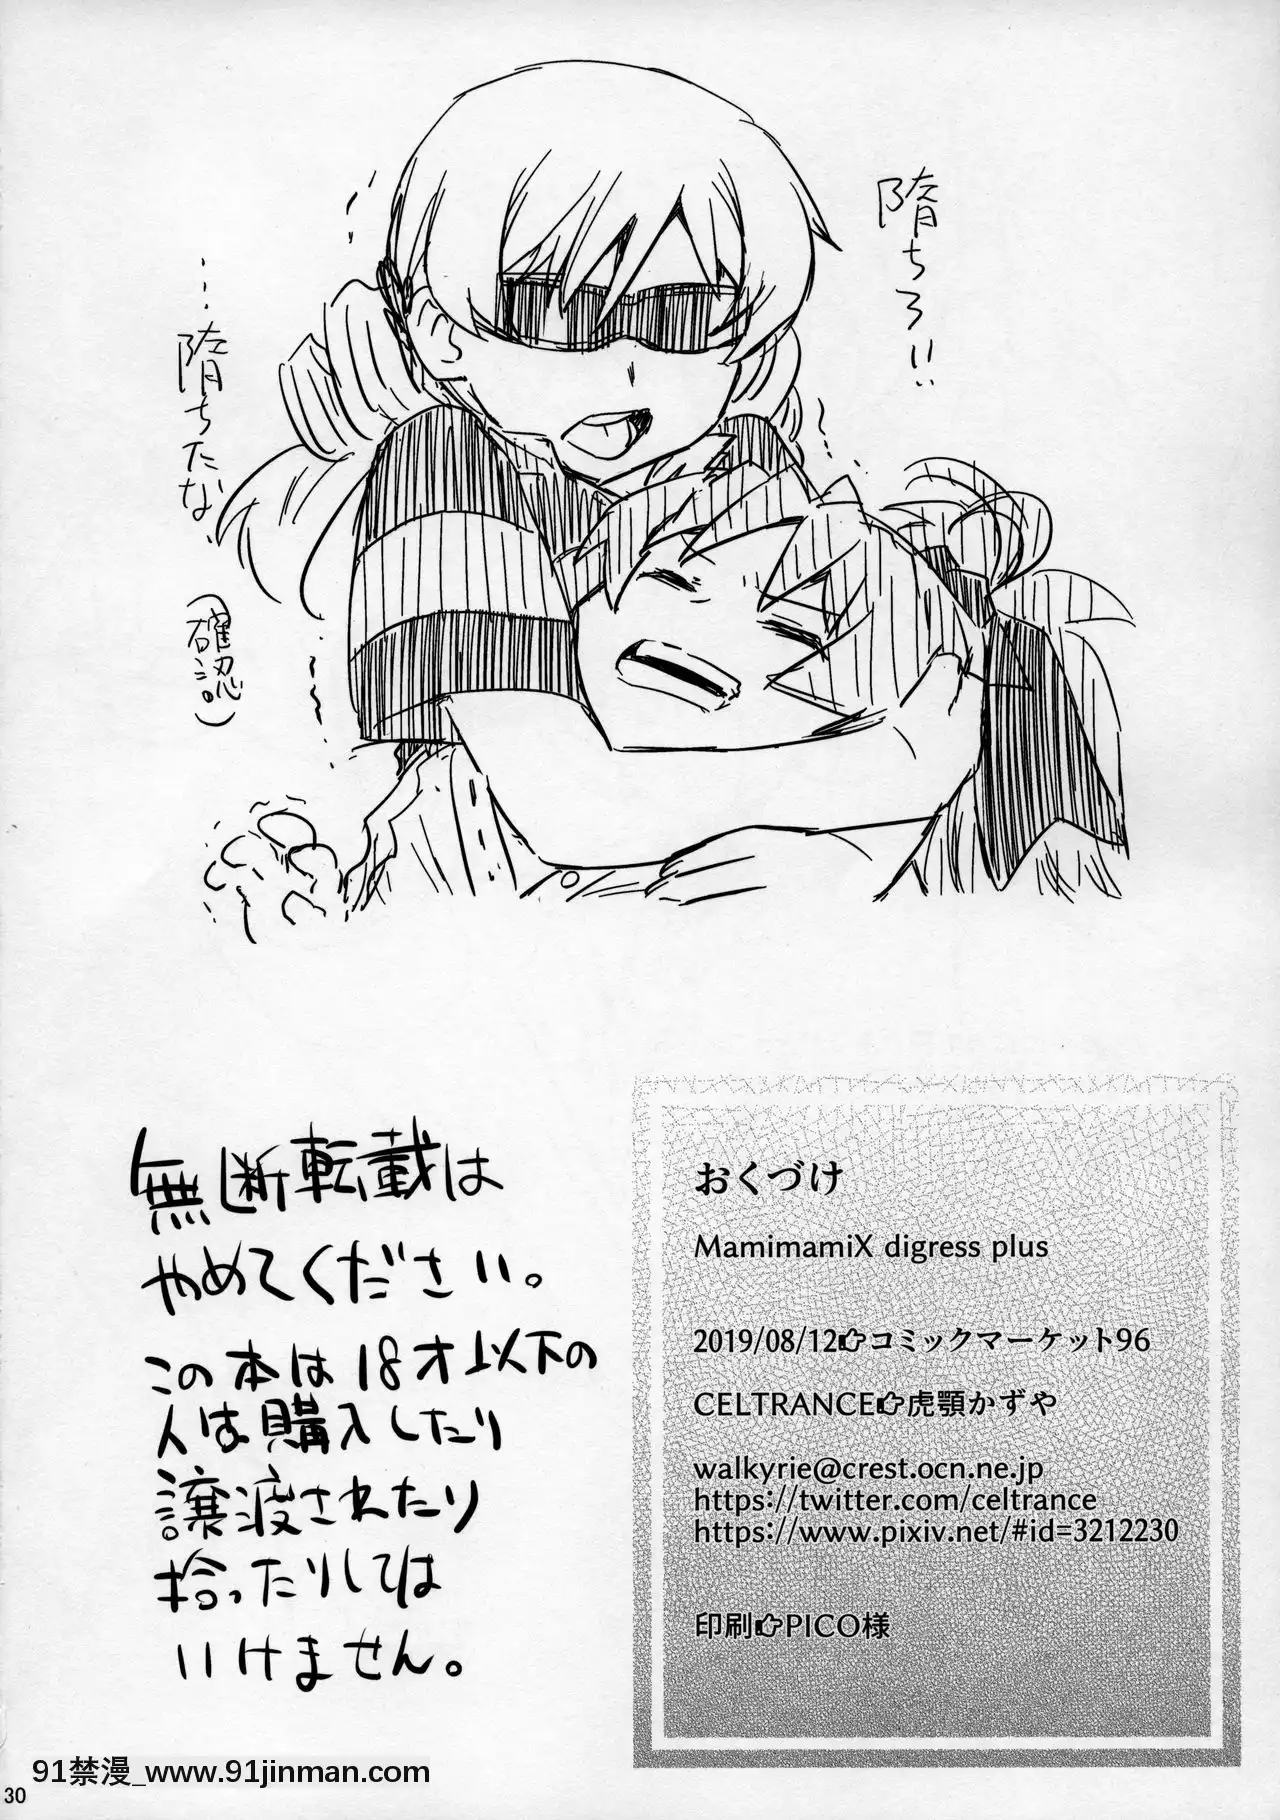 堕ちろ!!
…堕ちたな、
(確認。)
無断転載は
やめてください。
この本は18才以下の
人は購入したり
譲渡されたり
拾ったりしては
いけません。
おくづけ
MamimamiX digress plus
2019/08/12☞コミックマーケット96
CELTRANCE☞虎顎かずや
walkyrie@crest.ocn.ne.jp
https://twitter.com/celtrance
https://www.pixiv.net/#id=3212230
印刷☞PICO様
91禁漫_www.91jinman.com
30